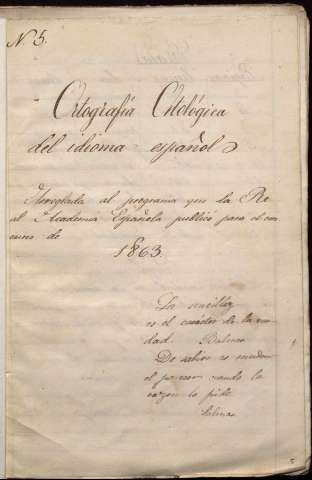 N. 5.
Ortografía Ortológica
del idioma español
Arreglada al programa que la Re
al Academia Española publicó para el con
curso de
1863.
La sencillez
es el carácter de la ver
dad. Balmes
De sabios es mudar
el parecer cuando la
razon lo pide